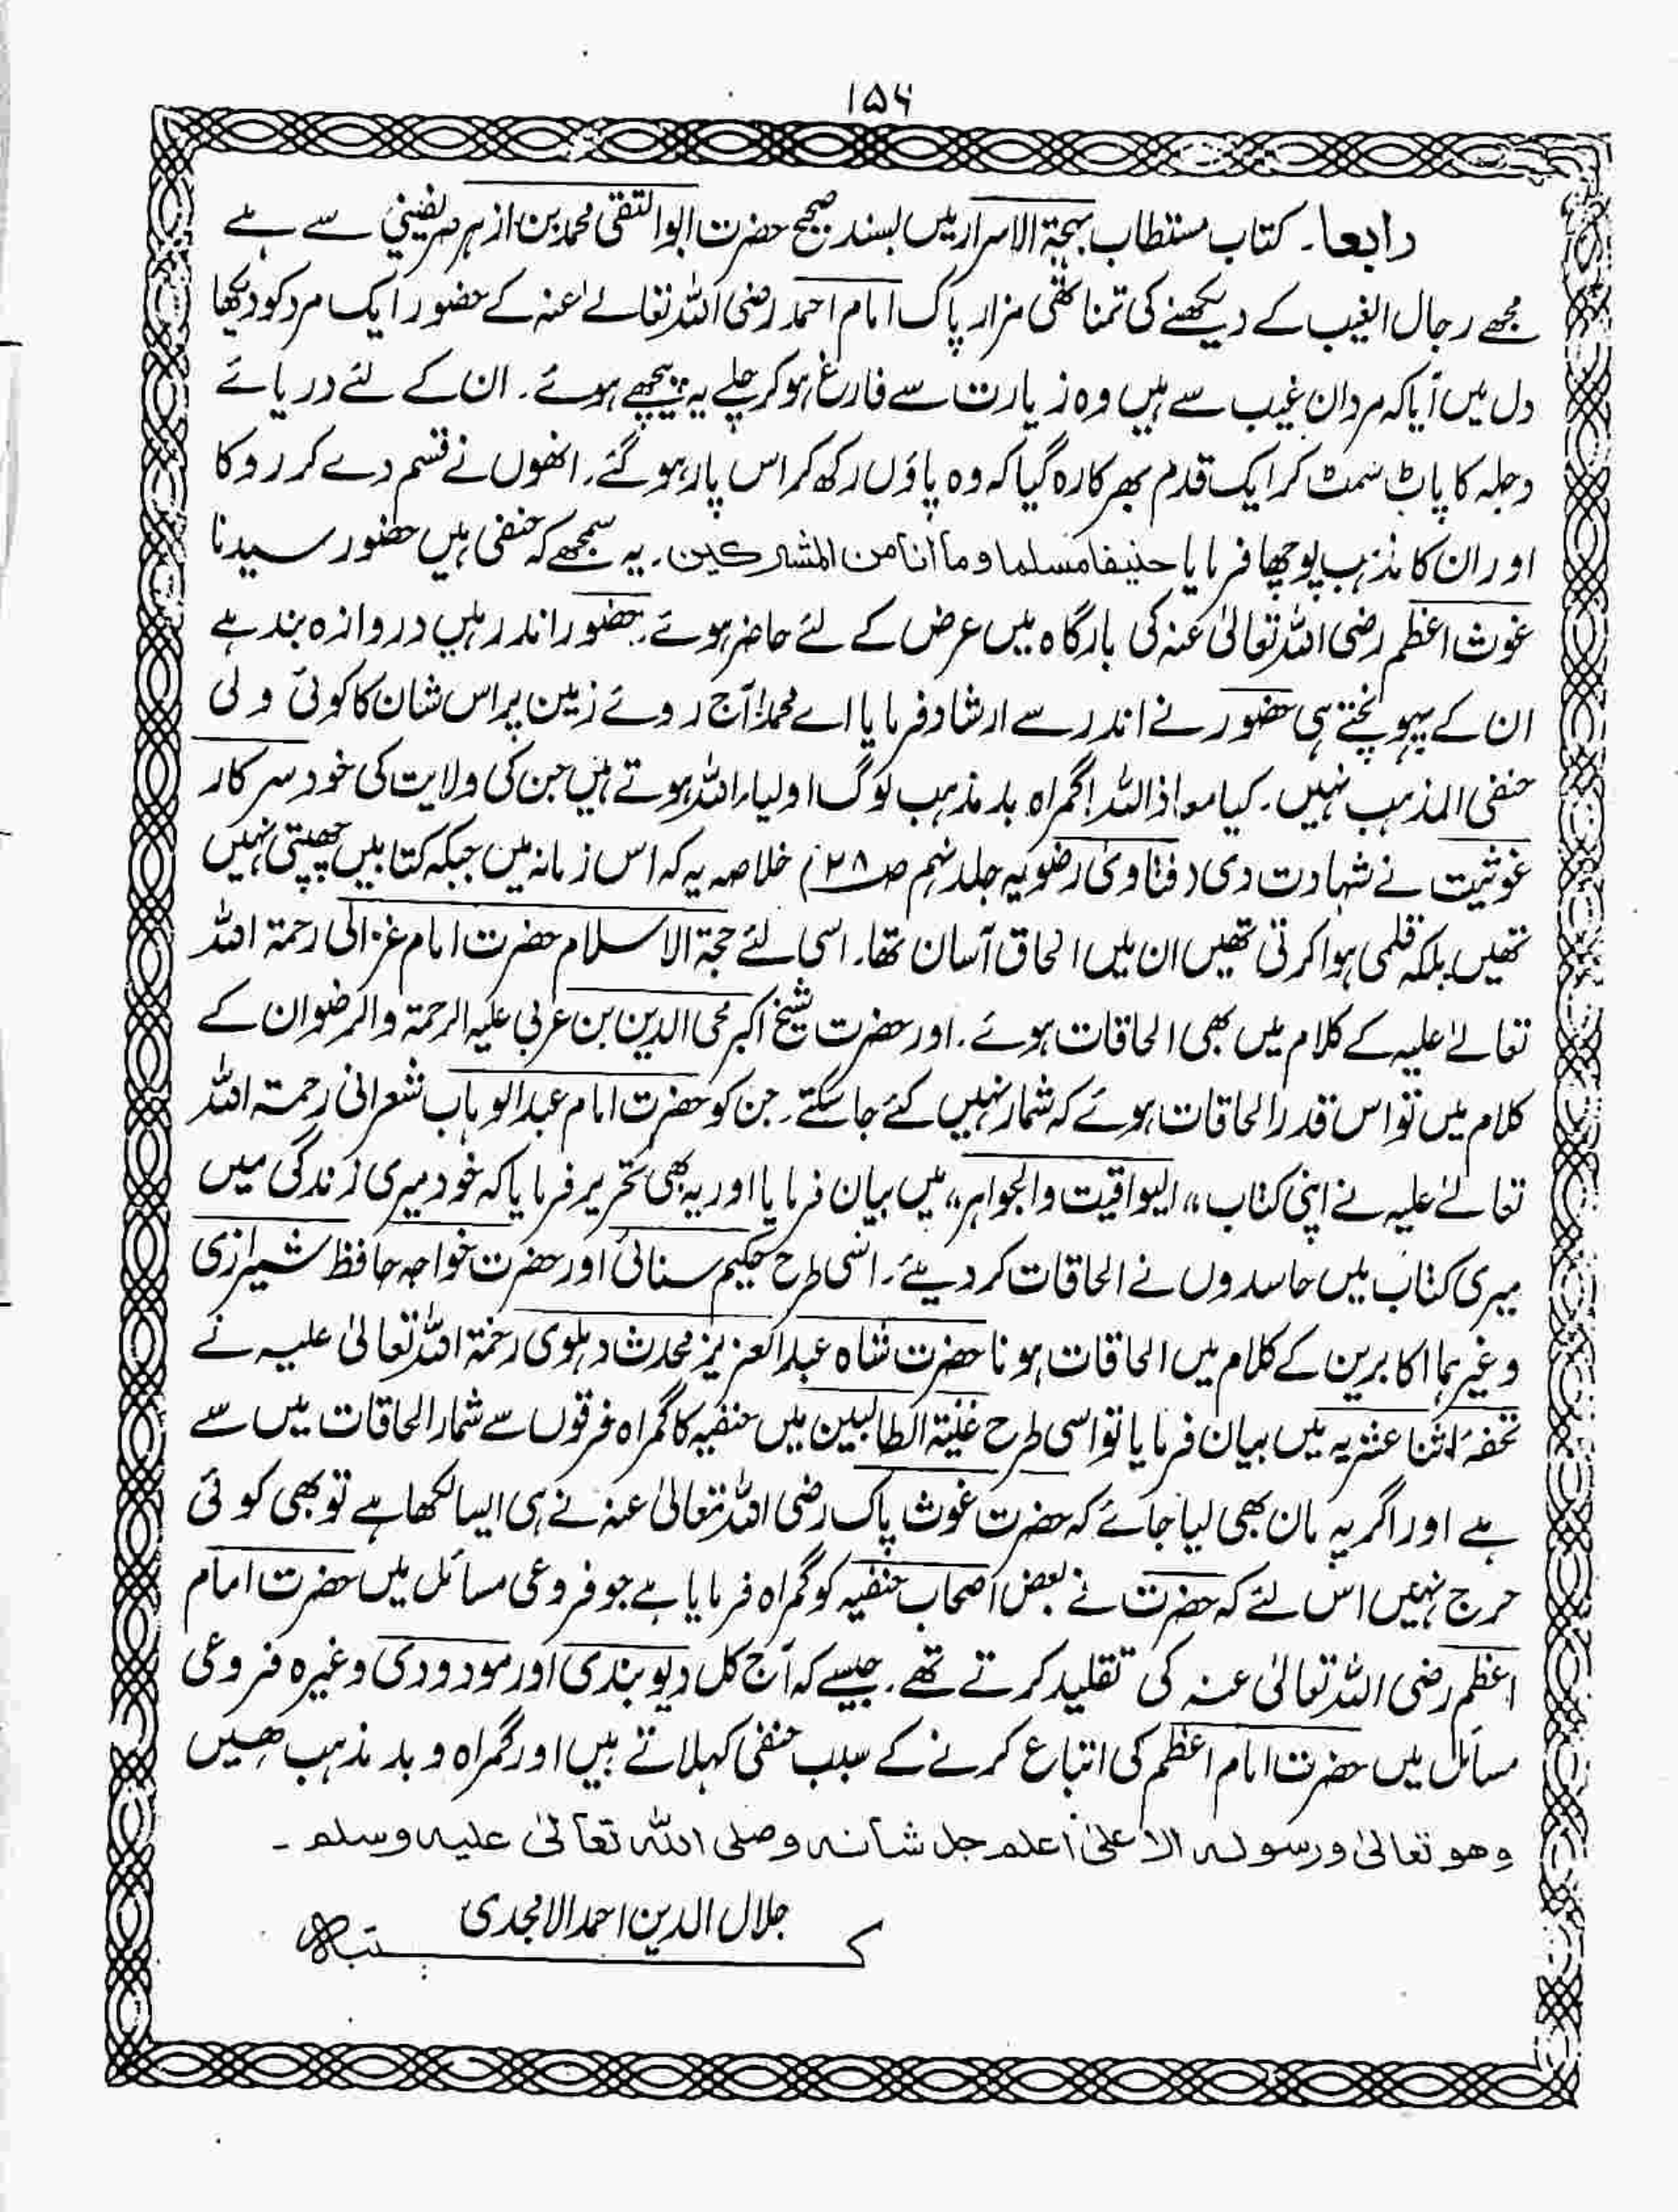 ۱۵۶
رابعا۔ کتاب مستطاب بہجۃ الاسرار میں بسند صحیح حضرت ابوالتقی محمد بن ازہر صریفینی سے ہے
مجھے رجال الغیب کے دیکھنے کی تمنا تھی مزار پاک امام احمد رضی اللہ تعالےٰ عنہ کے حضور ایک مرد کو دیکھا
دل میں آیا کہ مردان غیب سے ہیں وہ زیارت سے فارغ ہوکر چلے یہ پیچھے ہوئے۔ ان کے لئے دریائے
دجلہ کا پاٹ سمٹ کر ایک قدم بھر کا رہ گیا کہ وہ پاؤں رکھ کر اس پار ہو گئے۔ انھوں نے قسم دے کر روکا
اور ان کا مذہب پوچھا فرمایا حنیفا مسلما وما أنا من المشرکین۔ یہ سمجھے کہ حنفی ہیں حضور سیدنا
غوث اعظم رضی اللہ تعالیٰ عنہ کی بارگاہ میں عرض کے لئے حاضر ہوئے۔ حضور اندر ہیں دروازہ بند ہے
ان کے پہونچتے ہی حضور نے اندر سے ارشاد فرمایا اے محمد! آج روئے زمین پر اس شان کا کوئی ولی
حنفی المذہب نہیں۔ کیا معاذ اللہ! گمراہ بد مذہب لوگ اولیاء اللہ ہوتے ہیں جن کی ولایت کی خود سرکار
غوثیت نے شہادت دی (فتاویٰ رضویہ جلد نہم ص۲۸) خلاصہ یہ کہ اس زمانہ میں جبکہ کتابیں چھپتی نہیں
تھیں بلکہ قلمی ہوا کرتی تھیں ان میں الحاق آسان تھا۔ اسی لئے حجۃ الاسلام حضرت امام غزالی رحمۃ اللہ
تعالےٰ علیہ کے کلام میں بھی الحاقات ہوئے۔ اور حضرت شیخ اکبر محی الدین بن عربی علیہ الرحمۃ والرضوان کے
کلام میں تو اس قدر الحاقات ہوئے کہ شمار نہیں کئے جاسکتے۔ جن کو حضرت امام عبد الوہاب شعرانی رحمۃ اللہ
تعالےٰ علیہ نے اپنی کتاب ،،الیواقیت والجواہر،، میں بیان فرمایا اور یہ بھی تحریر فرمایا کہ خود میری زندگی میں
میری کتاب میں حاسدوں نے الحاقات کر دیئے۔ اسی طرح حکیم سنائی اور حضرت خواجہ حافظ شیرازی
وغیرہما اکابرین کے کلام میں الحاقات ہونا حضرت شاہ عبد العزیز محدث دہلوی رحمۃ اللہ تعالیٰ علیہ نے
تحفۂ اثنا عشریہ میں بیان فرمایا تو اسی طرح غنیۃ الطالبین میں حنفیہ کا گمراہ فرقوں سے شمار الحاقات میں سے
ہے اور اگر یہ مان بھی لیا جائے کہ حضرت غوث پاک رضی اللہ تعالیٰ عنہ نے ہی ایسا لکھا ہے تو بھی کوئی
حرج نہیں اس لئے کہ حضرت نے بعض اصحاب حنفیہ کو گمراہ فرمایا ہے جو فروعی مسائل میں حضرت امام
اعظم رضی اللہ تعالیٰ عنہ کی تقلید کرتے تھے۔ جیسے کہ آج کل دیوبندی اور مودودی وغیرہ فروعی
مسائل میں حضرت امام اعظم کی اتباع کرنے کے سبب حنفی کہلاتے ہیں اور گمراہ و بد مذہب ھیں
وھو تعالیٰ ورسولہ الاعلیٰ اعلم جل شانہ وصلی اللہ تعالیٰ علیہ وسلم۔
جلال الدین احمد الامجدی
کتبہ